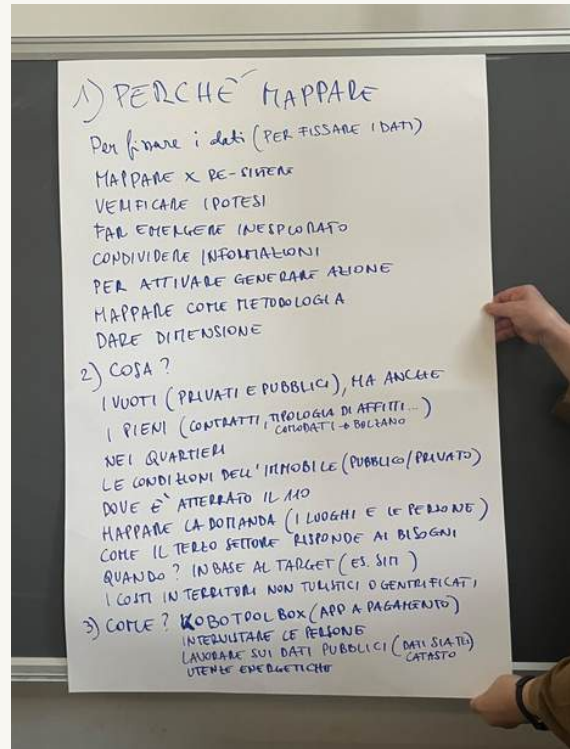 1) PERCHÈ MAPPARE
Per fissare i dati (PER FISSARE I DATI)
MAPPARE X RE-SISTERE
VERIFICARE IPOTESI
FAR EMERGERE INESPLORATO
CONDIVIDERE INFORMAZIONI
PER ATTIVARE GENERARE AZIONE
MAPPARE COME METODOLOGIA
DARE DIMENSIONE
2) COSA?
I VUOTI (PRIVATI E PUBBLICI), MA ANCHE
I PIENI (CONTRATTI, TIPOLOGIA DI AFFITTI...)
COMODATI → BOLZANO
NEI QUARTIERI
LE CONDIZIONI DELL'IMMOBILE (PUBBLICO/PRIVATO)
DOVE È ATTERRATO IL 110
MAPPARE LA DOMANDA (I LUOGHI E LE PERSONE)
COME IL TERZO SETTORE RISPONDE AI BISOGNI
QUANDO? IN BASE AL TARGET (ES.)
I COSTI IN TERRITORI NON TURISTICI O GENTRIFICATI
3) COME? KOBOTOOLBOX (APP A PAGAMENTO)
INTERVISTARE LE PERSONE
LAVORARE SUI DATI PUBBLICI (DATI
CATASTO
UTENZE ENERGETICHE